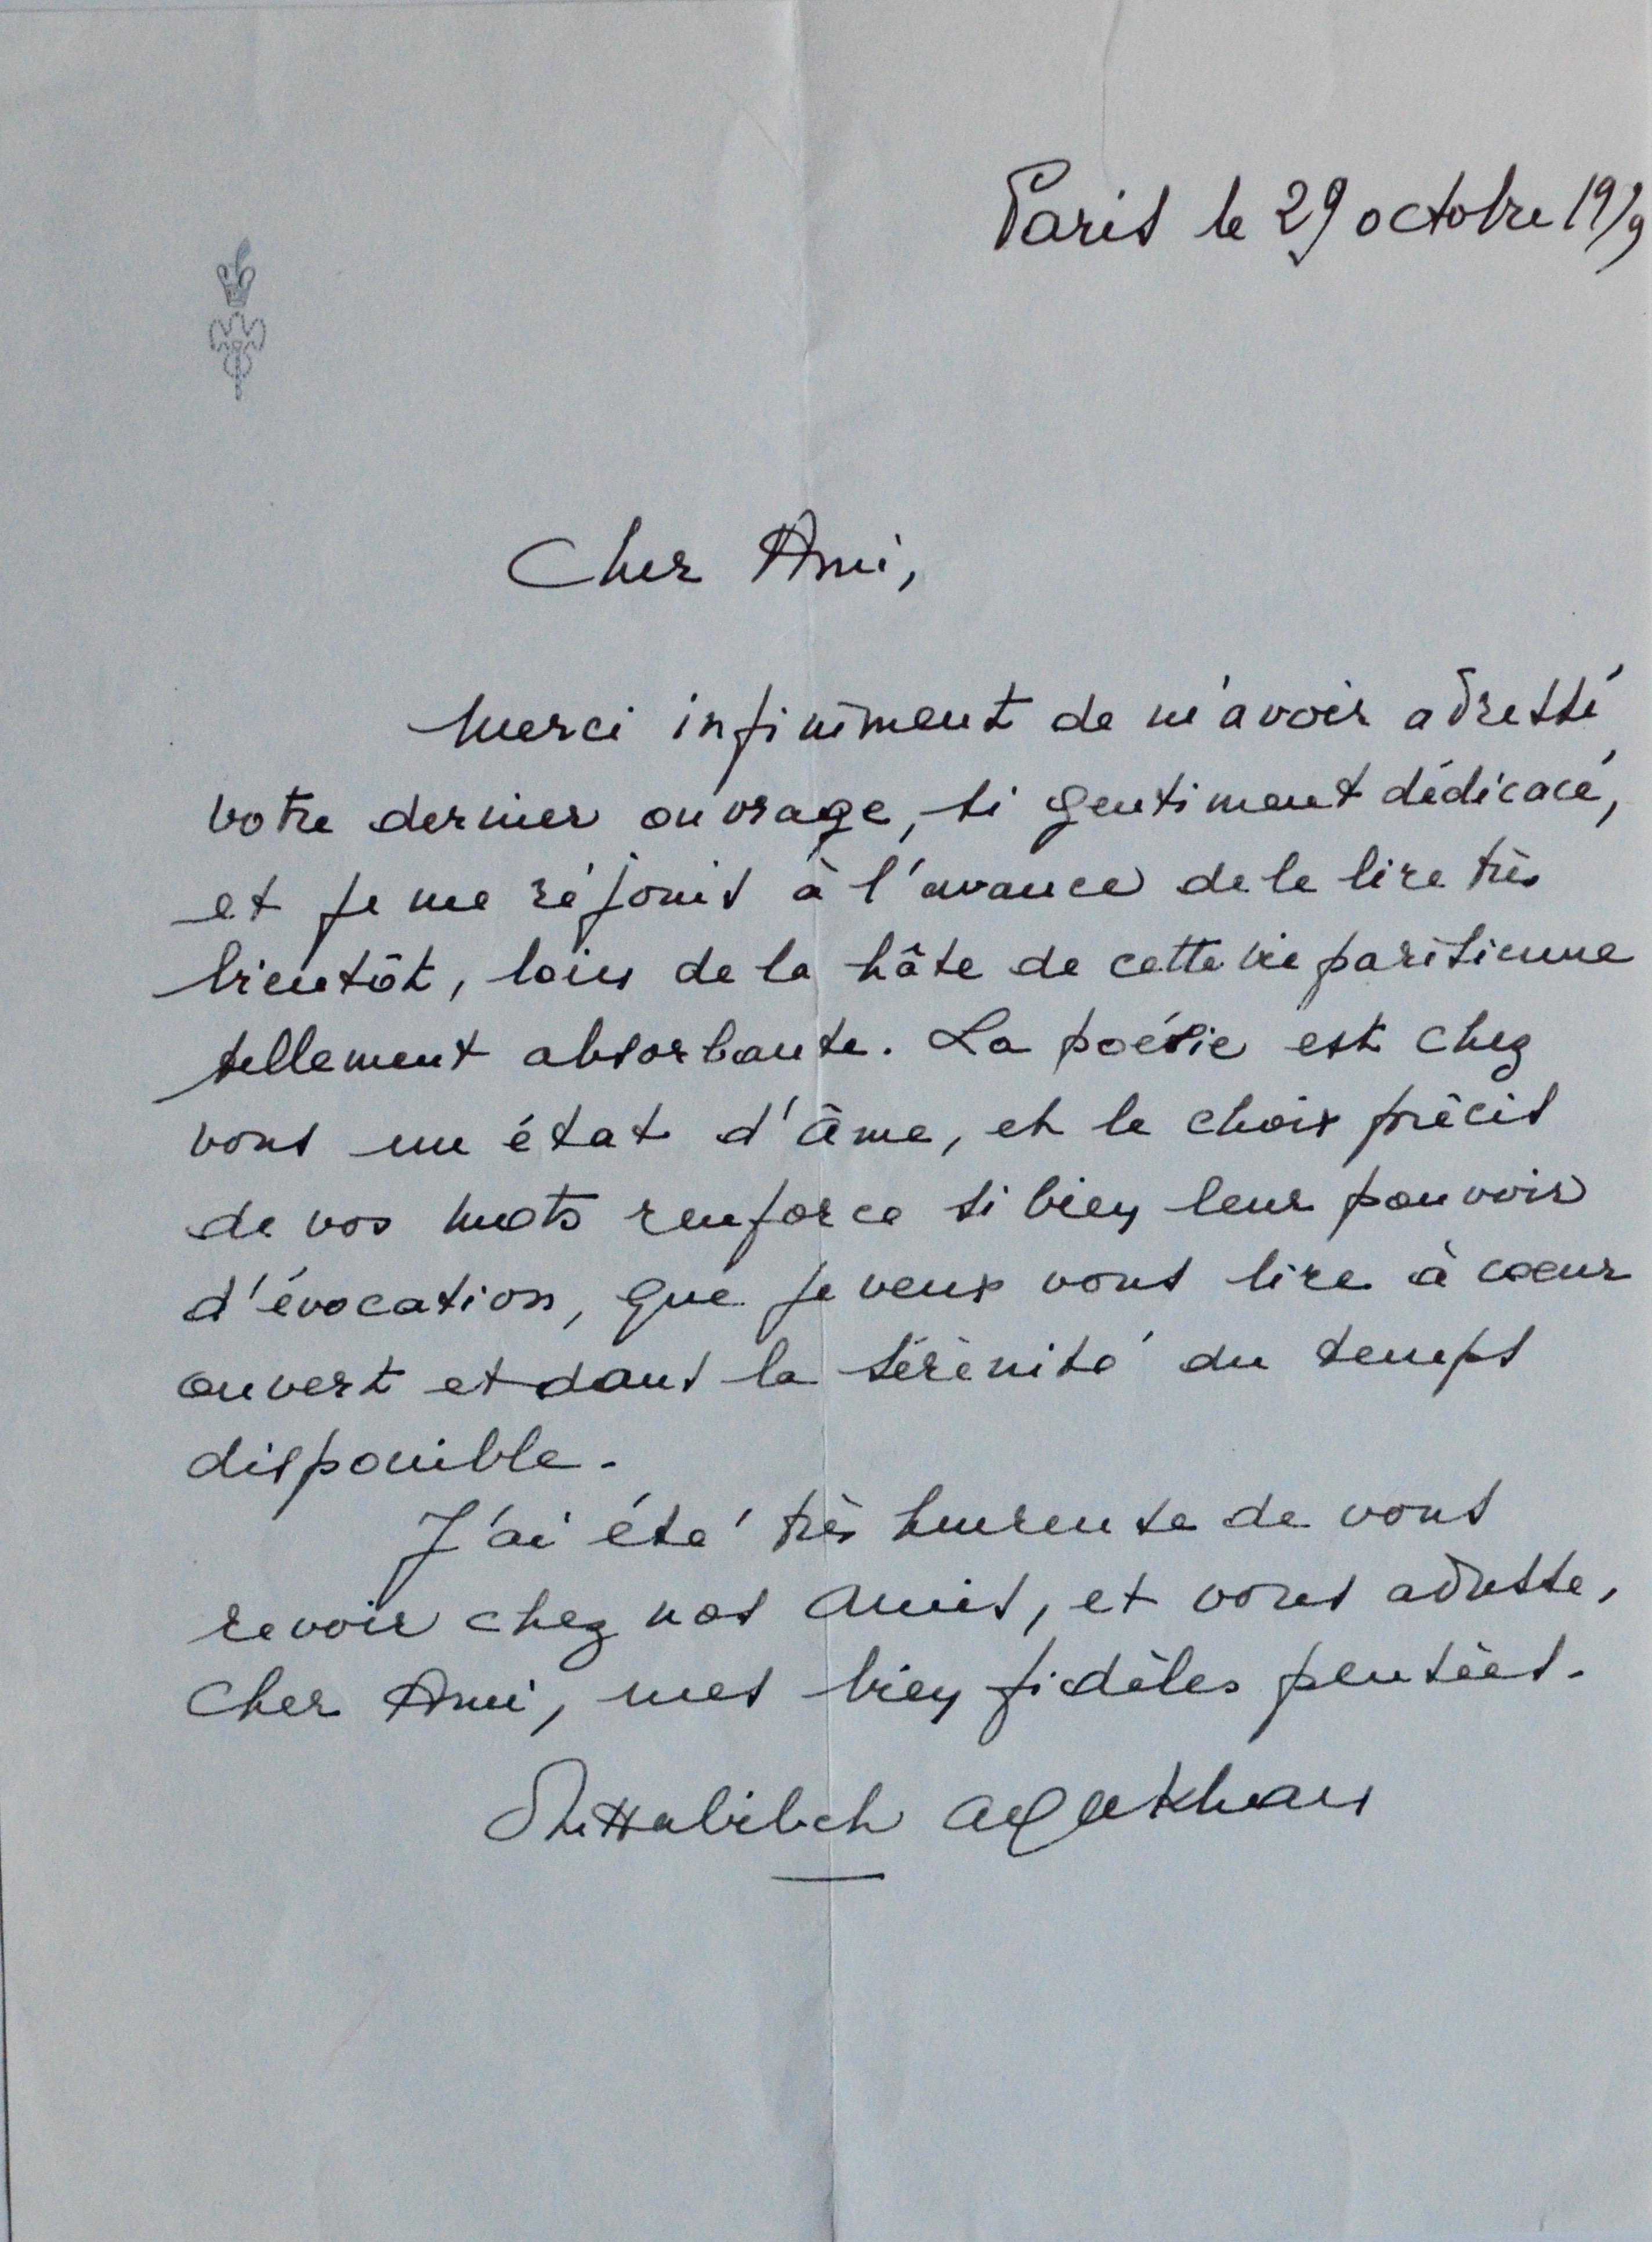 Paris le 29 octobre 1979
Cher Ami,
Merci infiniment de m'avoir adressé
votre dernier ouvrage, si gentiment dédicacé,
et je me réjouis à l'avance de le lire très
bientôt, loin de la hâte de cette vie parisienne
tellement absorbante. La poésie est chez
vous un état d'âme, et le choix précis
de vos mots renforce si bien leur pouvoir
d'évocation, que je veux vous lire à coeur
ouvert et dans la sérénité du temps
disponible.
J'ai été très heureuse de vous
revoir chez nos amis, et vous adresse,
Cher Ami, mes bien fidèles pensées.
Aga Khan